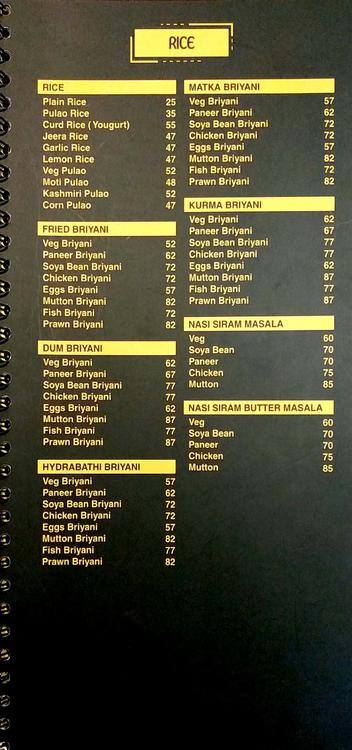 RICE
RICE
Plain Rice 25
Pulao Rice 35
Curd Rice ( Yougurt) 55
Jeera Rice 47
Garlic Rice 47
Lemon Rice 47
Veg Pulao 52
Moti Pulao 48
Kashmiri Pulao 52
Corn Pulao 47
FRIED BRIYANI
Veg Briyani 52
Paneer Briyani 62
Soya Bean Briyani 72
Chicken Briyani 72
Eggs Briyani 57
Mutton Briyani 82
Fish Briyani 72
Prawn Briyani 82
DUM BRIYANI
Veg Briyani 62
Paneer Briyani 67
Soya Bean Briyani 77
Chicken Briyani 77
Eggs Briyani 62
Mutton Briyani 87
Fish Briyani 77
Prawn Briyani 87
HYDRABATHI BRIYANI
Veg Briyani 57
Paneer Briyani 62
Soya Bean Briyani 72
Chicken Briyani 72
Eggs Briyani 57
Mutton Briyani 82
Fish Briyani 77
Prawn Briyani 82
MATKA BRIYANI
Veg Briyani 57
Paneer Briyani 62
Soya Bean Briyani 72
Chicken Briyani 72
Eggs Briyani 57
Mutton Briyani 82
Fish Briyani 72
Prawn Briyani 82
KURMA BRIYANI
Veg Briyani 62
Paneer Briyani 67
Soya Bean Briyani 77
Chicken Briyani 77
Eggs Briyani 62
Mutton Briyani 87
Fish Briyani 77
Prawn Briyani 87
NASI SIRAM MASALA
Veg 60
Soya Bean 70
Paneer 70
Chicken 75
Mutton 85
NASI SIRAM BUTTER MASALA
Veg 60
Soya Bean 70
Paneer 70
Chicken 75
Mutton 85